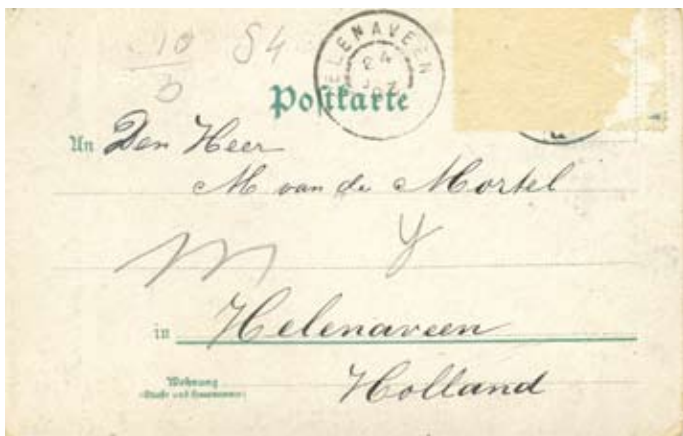 10 S4
b
HELENAVEEN
24
Postkarte
An Den Heer
M van de Mortel
m y
in Helenaveen
Wohnung
(Straße und Hausnummer)
Holland